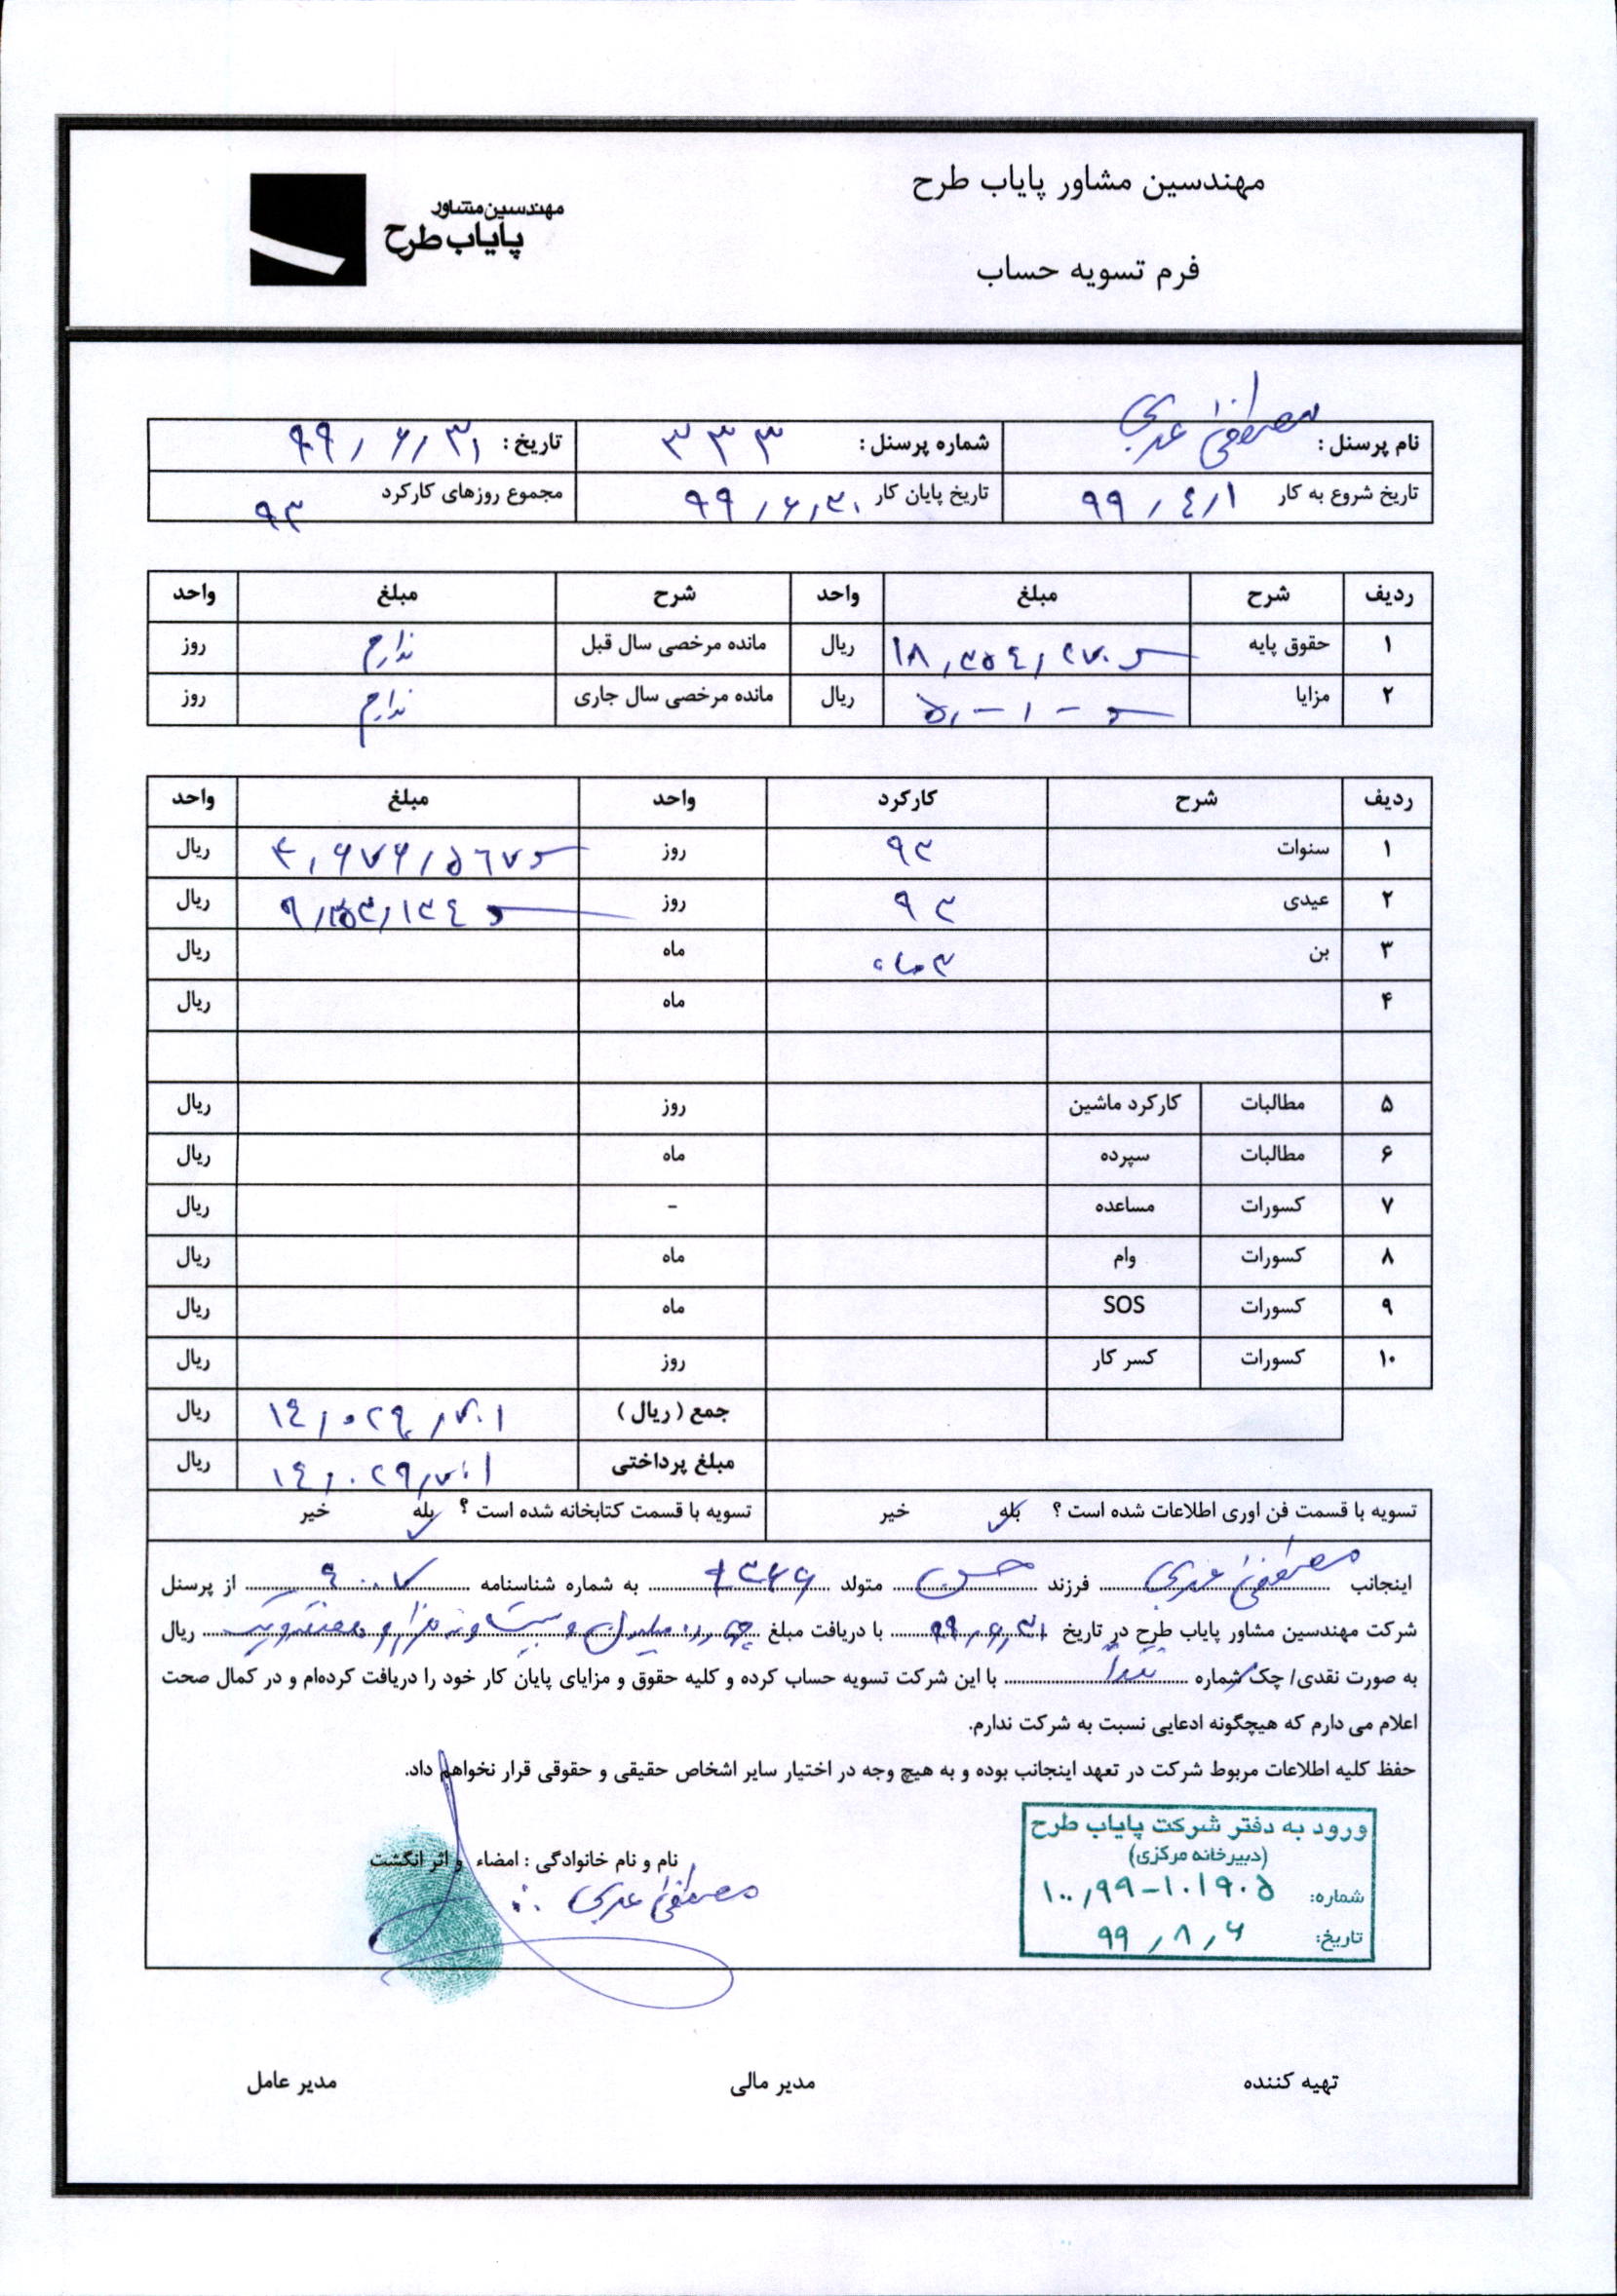 مهندسین مشاور پایاب طرح
مهندسین مشاور
پایاب طرح
فرم تسویه حساب
نام پرسنل : مصطفی عبدی شماره پرسنل : ۳۳۳ تاریخ : ۹۹/۶/۳۱
تاریخ شروع به کار ۹۹/۴/۱ تاریخ پایان کار ۹۹/۶/۳۱ مجموع روزهای کارکرد ۹۳
ردیف شرح مبلغ واحد شرح مبلغ واحد
۱ حقوق پایه ۱۸,۳۵۴,۲۷۰ ریال مانده مرخصی سال قبل ندارم روز
۲ مزایا ریال مانده مرخصی سال جاری ندارم روز
ردیف شرح کارکرد واحد مبلغ واحد
۱ سنوات ۹۳ روز ۴,۶۷۶,۵۶۷ ریال
۲ عیدی ۹۳ روز ۹,۳۵۳,۱۳۴ ریال
۳ بن ۳ ماه ماه ریال
۴ ماه ریال
۵ مطالبات کارکرد ماشین روز ریال
۶ مطالبات سپرده ماه ریال
۷ کسورات مساعده - ریال
۸ کسورات وام ماه ریال
۹ کسورات SOS ماه ریال
۱۰ کسورات کسر کار روز ریال
جمع ( ریال ) ۱۴,۰۲۹,۷۰۱ ریال
مبلغ پرداختی ۱۴,۰۲۹,۷۰۱ ریال
تسویه با قسمت فن اوری اطلاعات شده است ؟ بله خیر تسویه با قسمت کتابخانه شده است ؟ بله خیر
اینجانب مصطفی عبدی فرزند حسن متولد ۱۳۶۶ به شماره شناسنامه ۶۰۰۷ از پرسنل
شرکت مهندسین مشاور پایاب طرح در تاریخ ۹۹/۶/۳۱ با دریافت مبلغ چهارده میلیون و بیست و نه هزار و هفتصد و یک ریال
به صورت نقدی/ چک شماره نقداً با این شرکت تسویه حساب کرده و کلیه حقوق و مزایای پایان کار خود را دریافت کرده‌ام و در کمال صحت
اعلام می دارم که هیچگونه ادعایی نسبت به شرکت ندارم.
حفظ کلیه اطلاعات مربوط شرکت در تعهد اینجانب بوده و به هیچ وجه در اختیار سایر اشخاص حقیقی و حقوقی قرار نخواهم داد.
ورود به دفتر شرکت پایاب طرح
(دبیرخانه مرکزی)
شماره: ۱۰۰,۹۹-۱۰۱۹۰۵
تاریخ: ۹۹/۸/۶
نام و نام خانوادگی : امضاء و اثر انگشت
مصطفی عبدی
تهیه کننده مدیر مالی مدیر عامل